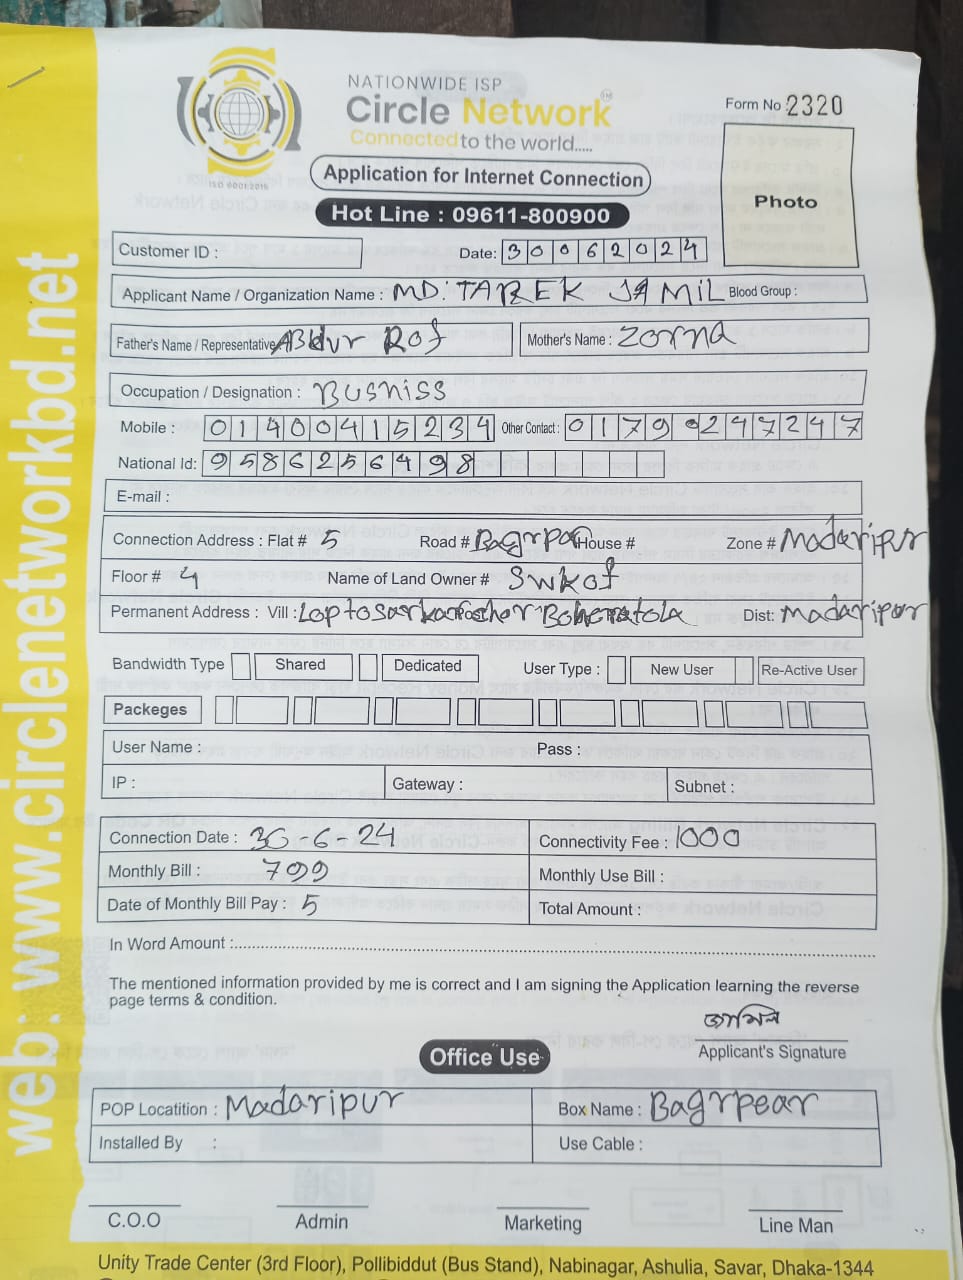 NATIONWIDE ISP
Circle Network
Connected to the world.....
ISO 9001:2015
Form No : 2320
Application for Internet Connection
Hot Line : 09611-800900
Photo
Customer ID :
Date: 30062024
Applicant Name / Organization Name : MD: TAREK JAMIL Blood Group :
Father's Name / Representative ABdur Rof Mother's Name : Zorna
Occupation / Designation : Busniss
Mobile : 01400415234 Other Contact : 01790247247
National Id: 9586256498
E-mail :
Connection Address : Flat # 5 Road # House # Zone # Madaripur
Floor # 4 Name of Land Owner #
Permanent Address : Vill : Dist: Madaripur
Bandwidth Type Shared Dedicated User Type : New User Re-Active User
Packeges
User Name : Pass :
IP : Gateway : Subnet :
Connection Date : 30-6-24 Connectivity Fee : 1000
Monthly Bill : 799 Monthly Use Bill :
Date of Monthly Bill Pay : 5 Total Amount :
In Word Amount :
The mentioned information provided by me is correct and I am signing the Application learning the reverse
page terms & condition.
জামিল
Applicant's Signature
Office Use
POP Locatition : Madaripur Box Name : Bagrpear
Installed By : Use Cable :
C.O.O Admin Marketing Line Man
Unity Trade Center (3rd Floor), Pollibiddut (Bus Stand), Nabinagar, Ashulia, Savar, Dhaka-1344
web: www.circlenetworkbd.net